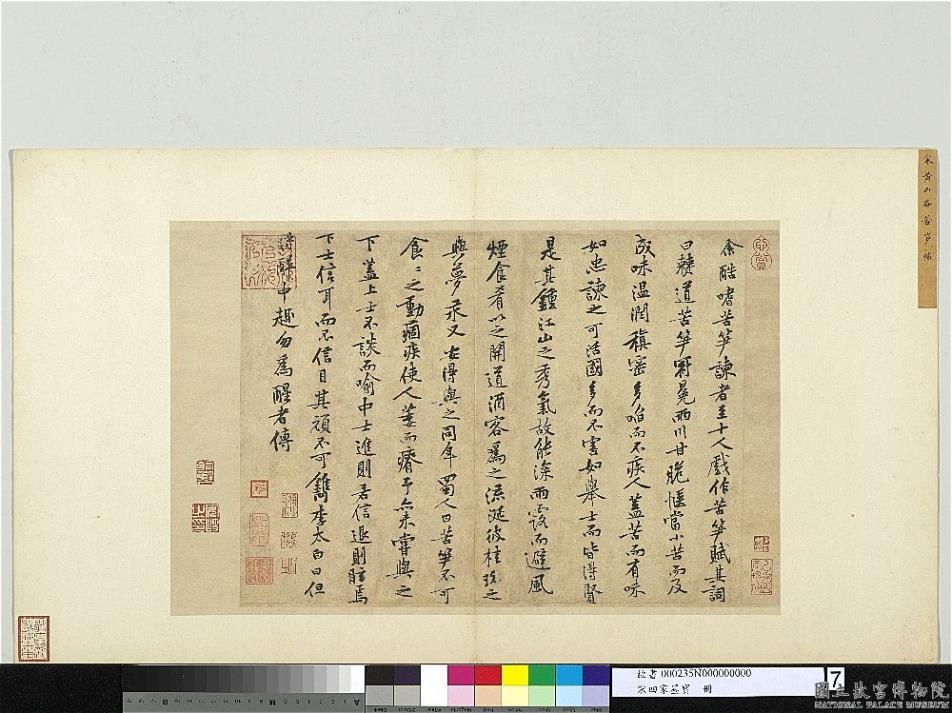 宋黃山谷苦笋帖
余酷嗜苦笋諫者至十人戲作苦笋賦其詞
曰僰道苦笋冠冕兩川甘脆愜當小苦而及
成味温潤縝密多啗而不疾人蓋苦而有味
如忠諫之可活國多而不害如舉士而皆得賢
是其鍾江山之秀氣故能深雨露而避風
煙食肴以之開道酒客為之流涎彼桂玫之
與夢汞又安得與之同年蜀人曰苦笋不可
食〻之動痼疾使人萎而瘠予亦未嘗與之
下蓋上士不談而喻中士進則若信退則眩焉
下士信耳而不信目其頑不可鐫李太白曰但
得醉中趣勿為醒者傳
故書 000235N000000000
宋四家墨寶 冊
7
國立故宮博物院
NATIONAL PALACE MUSEUM